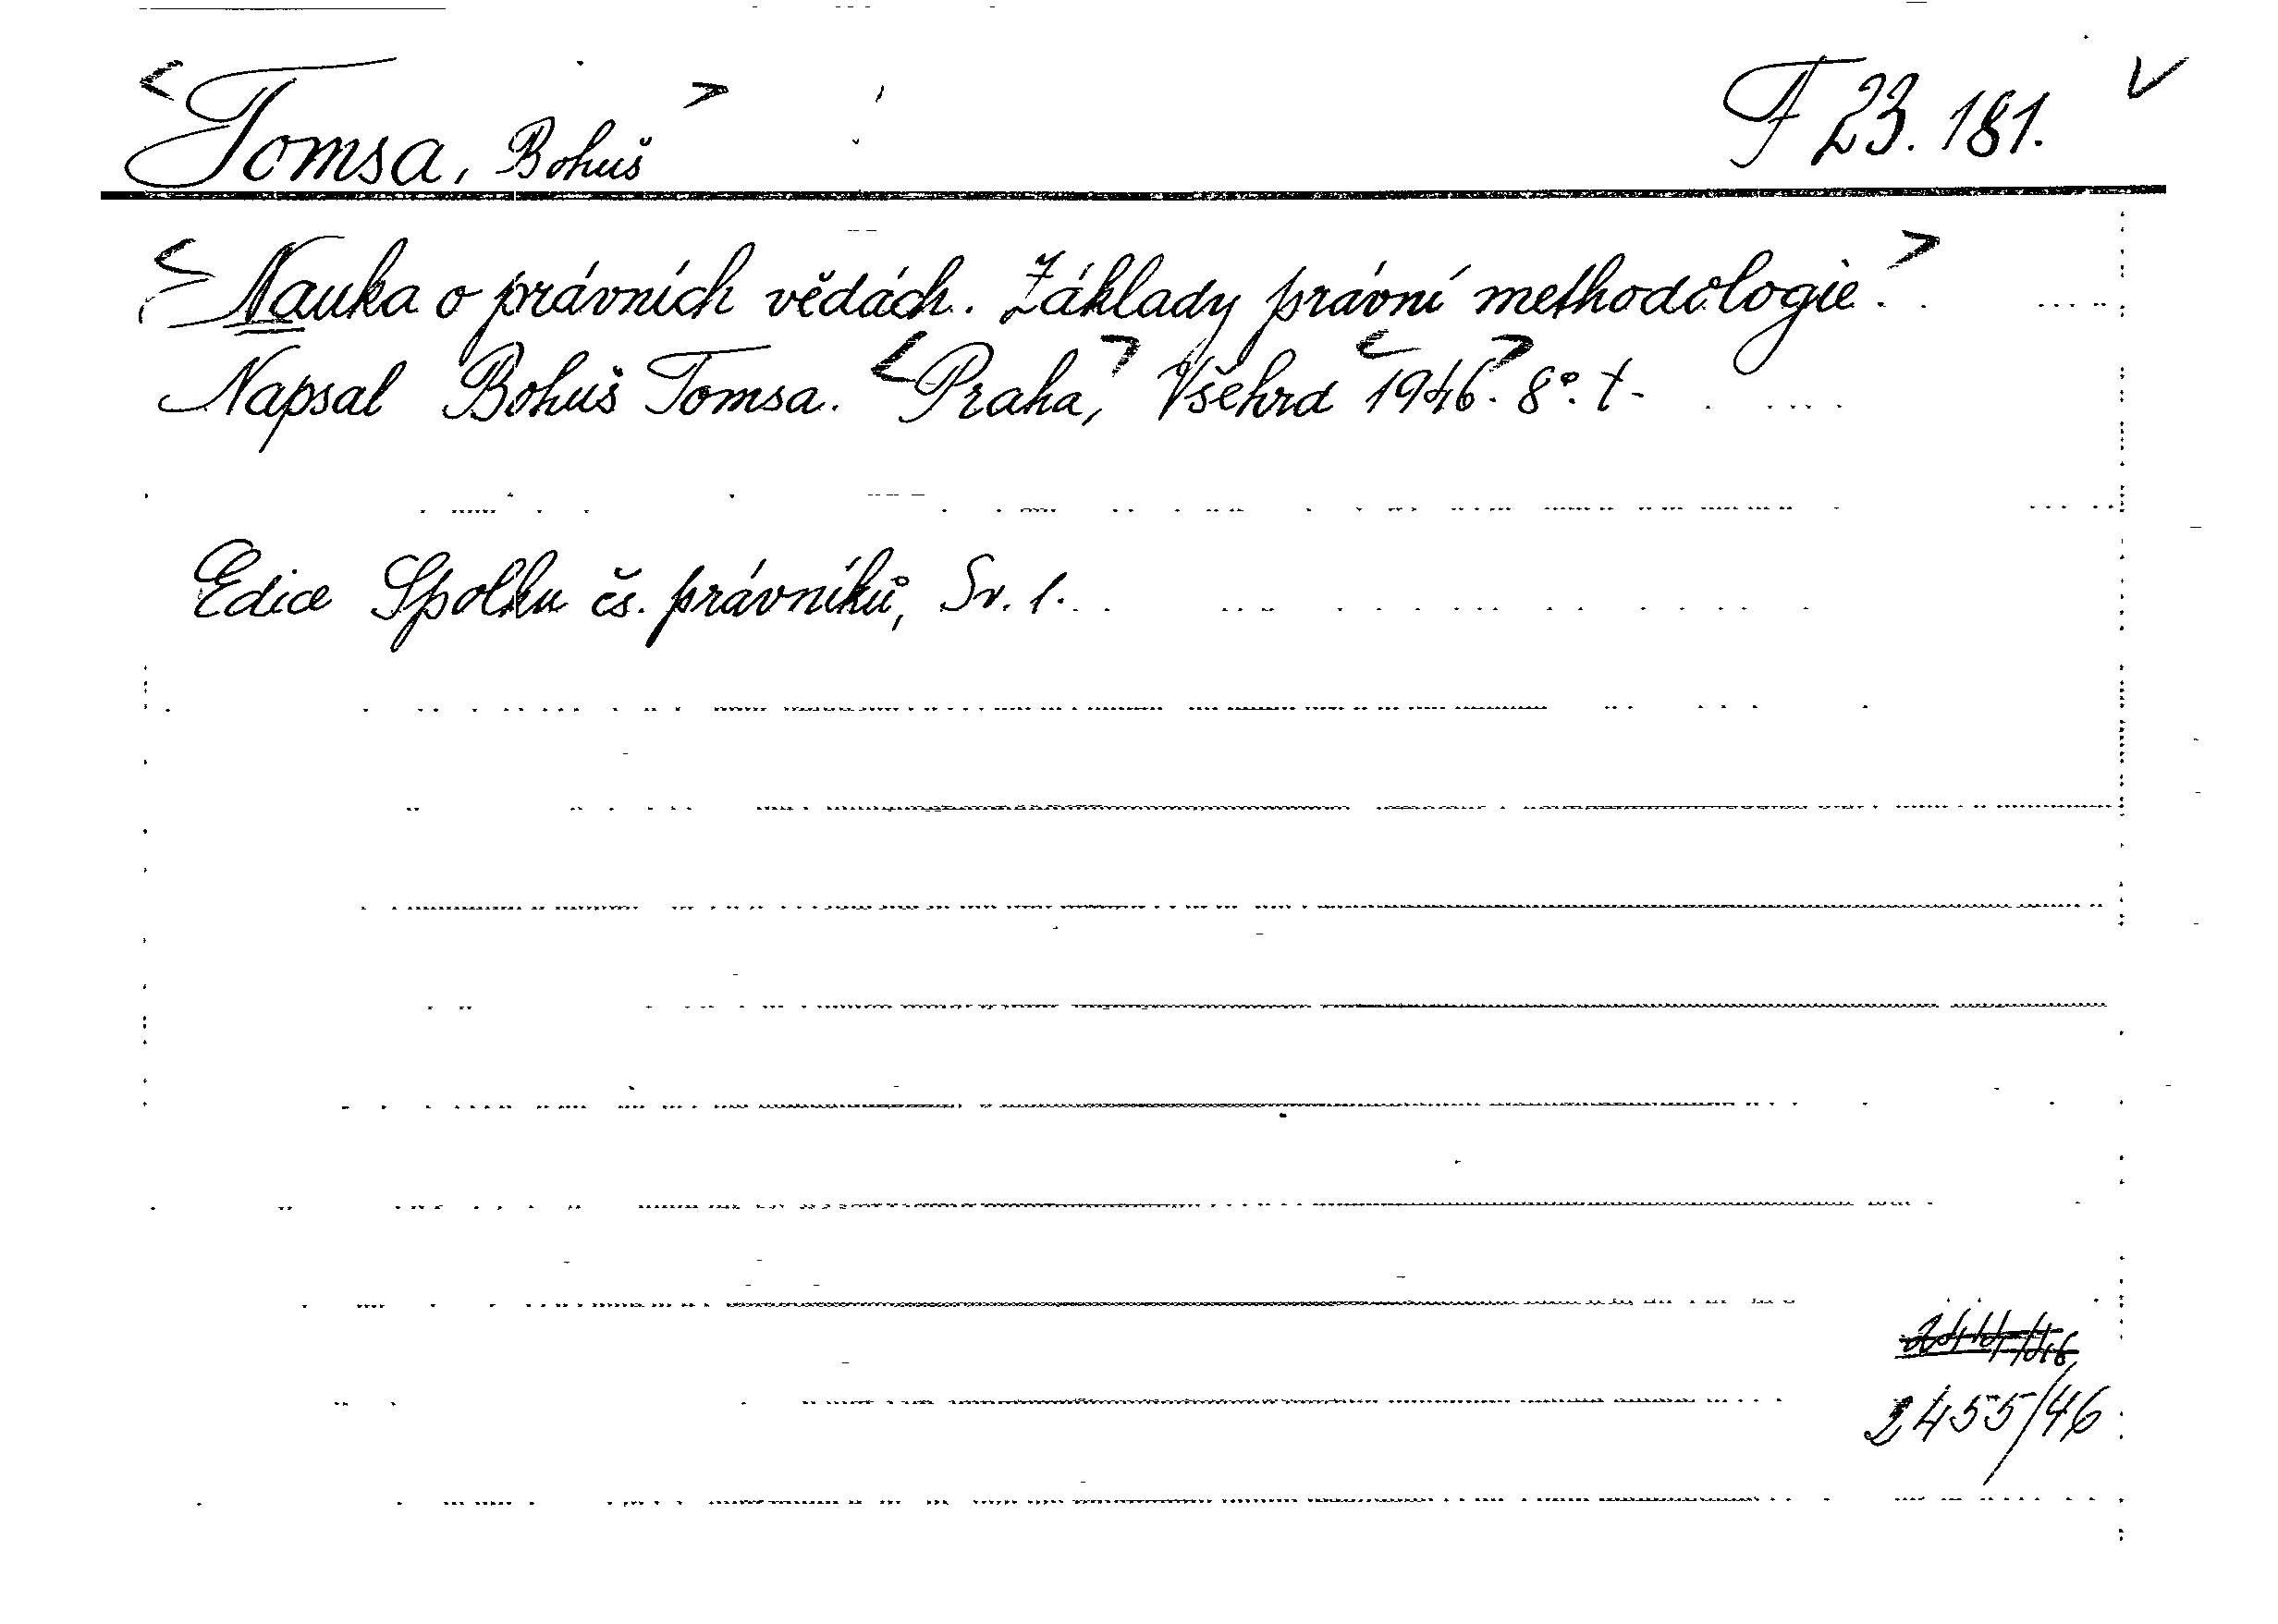 <Tomsa, Bohuš> F 23.181. V
<Nauka o právních vědách. Základy právní methodologie.>
Napsal Bohuš Tomsa. <Praha,> Všehrd <1946>. 8°. t-
Edice Spolku čs. právníků, Sv. 1.
2455/46